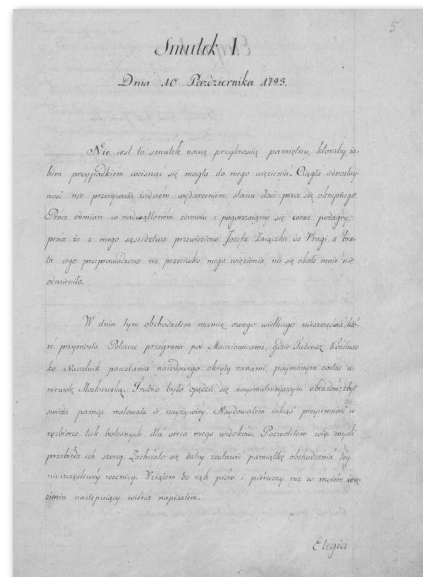 5
Smutek I
Dnia 10 Października 1795.
Nie jest to smutek nową przygodą pamiętny, któraby ja-
kim przypadkiem wcisnąć się mogła do mego więzienia. Ciągła jednostaj-
ność nie przerywała żadnem wydarzeniem stanu dość przez się okropnego.
Prócz odmian w nadwątlonem zdrowiu i pogarszającej się coraz podagry,
prócz że z mego sąsiedztwa przewieziono Józefa Zajączka do Pragi, a bra-
ta jego przeprowadzono na przeciwko mego więzienia, nic się około mnie nie
odmieniło.
W dniu tym obchodziłem rocznicę owego wielkiego nieszczęścia, któ-
re przyniosła Polszcze przegrana pod Maciejowicami, gdzie Tadeusz Kościusz-
ko Naczelnik powstania narodowego okryty ranami, pojmanym został w
niewolę Moskiewską. Trudno było opędzić się najsmutniejszym obrazom, zbyt
świeża pamięć malowała je najżywiej. Znajdowałem jakąś przyjemność w
rozbiorze tak bolesnych dla serca mego widoków. Pozwoliłem więc myśli
przebiedz ich szereg. Zachciało się dalej zostawić pamiątkę obchodzenia tej
nieszczęśliwej rocznicy. Wziąłem do rąk pióro i pierwszy raz w moim wię-
zieniu następujący wiersz napisałem.
Elegia